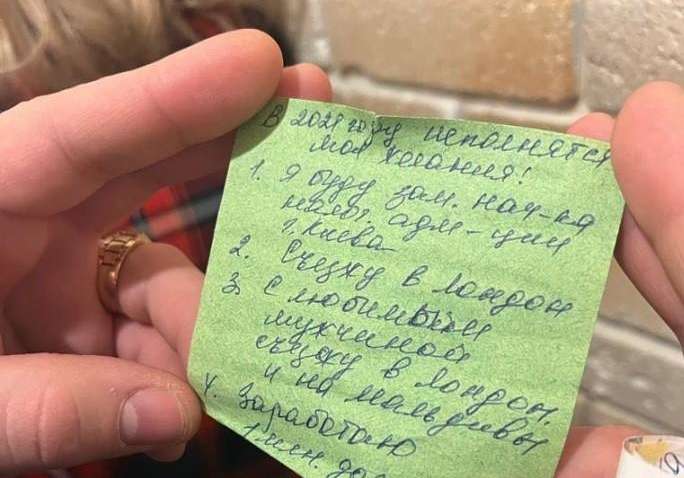 В 2021 году исполнятся
мои желания!
1. Я буду зам. нач-ка
налог. адм-ции
г. Киева
2. Съезжу в Лондон
3. С любимый
мужчиной
съезжу в Лондон.
и на Мальдивы
4. Заработаю
1 млн.